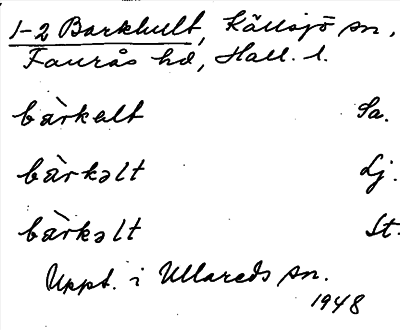 1-2 Barkhult, Källsjö sn,
Faurås hd, Hall. l.
bàrkelt Sa.
bàrkəlt Lj.
bàrkəlt St.
Uppt. i Ullareds sn.
1948